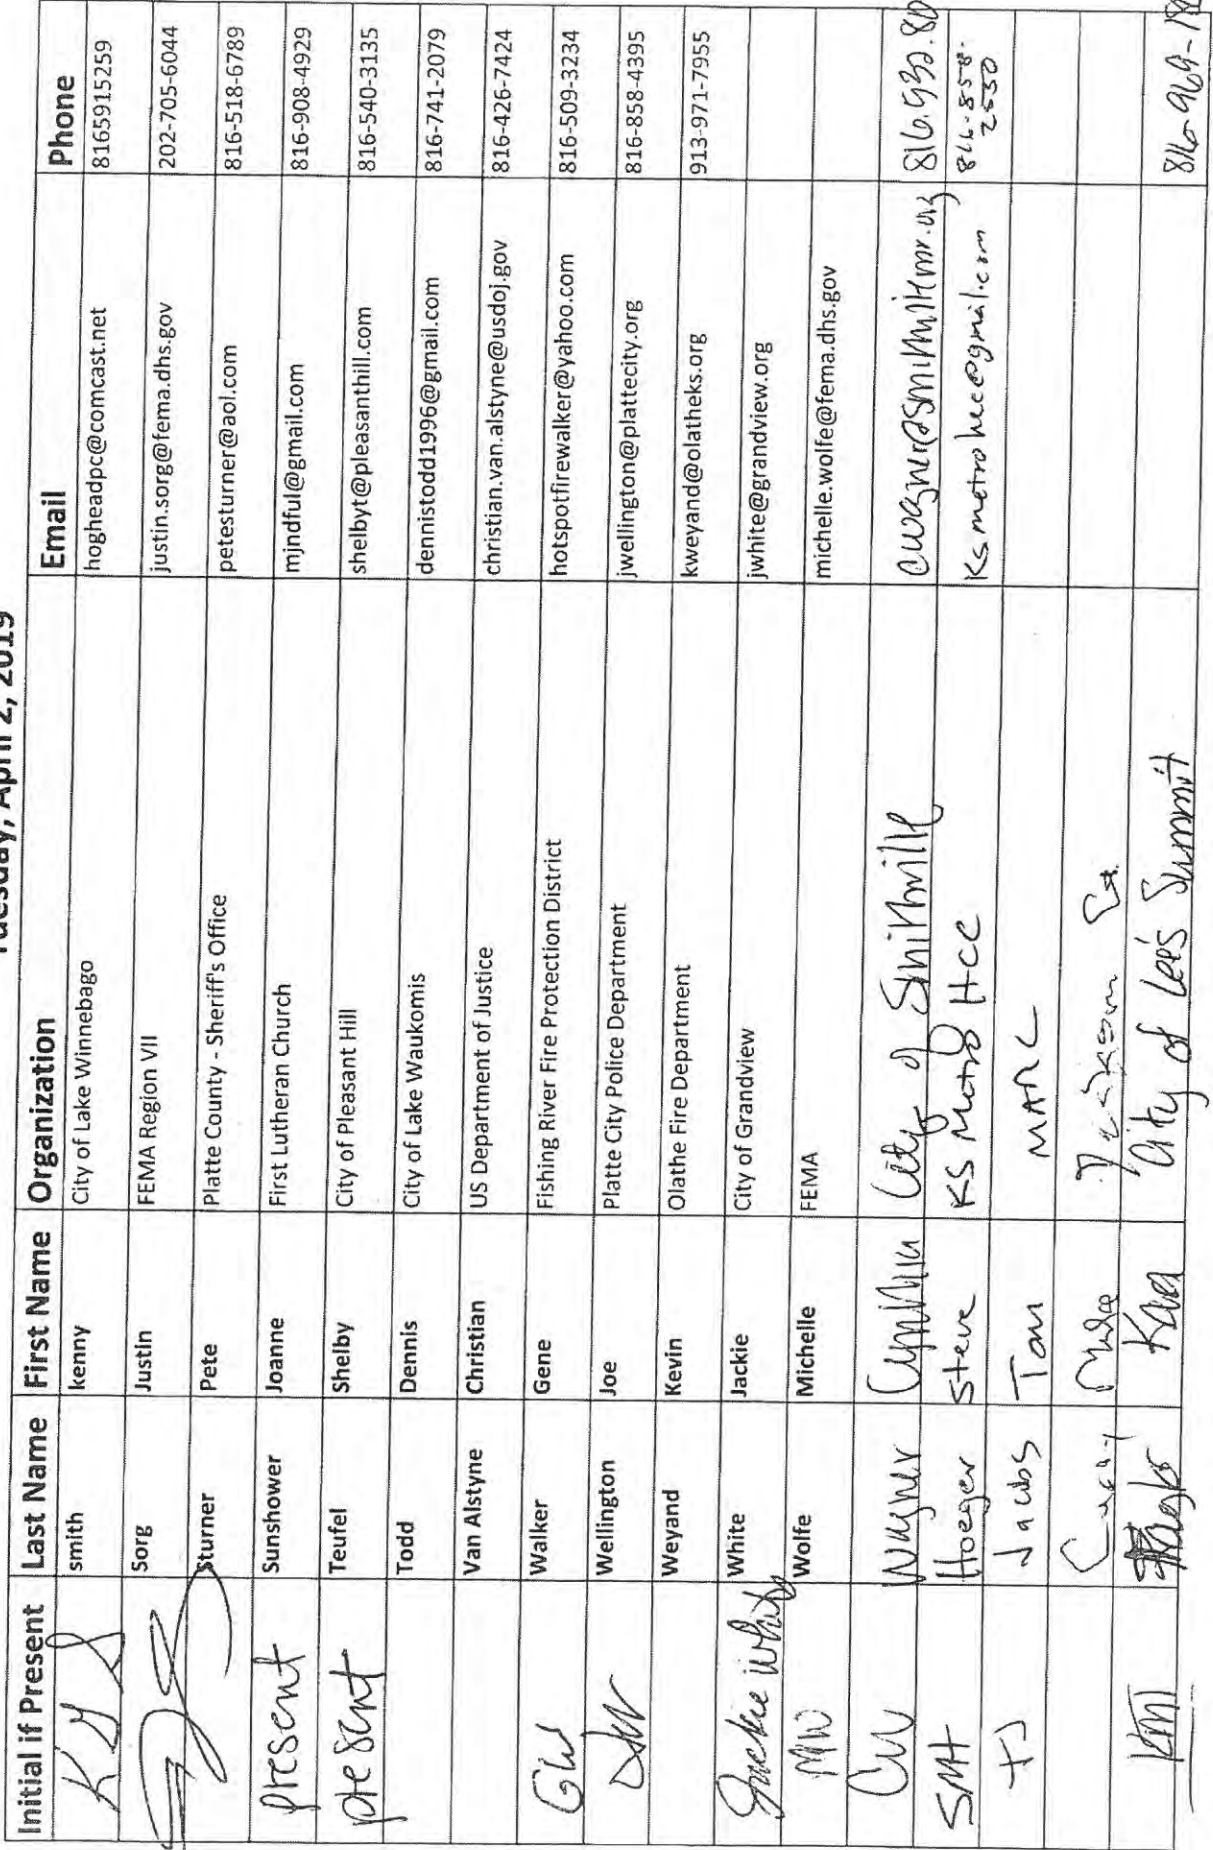 Tuesday, April 2, 2019
Initial if Present Last Name First Name Organization Email Phone
KGS smith kenny City of Lake Winnebago hogheadpc@comcast.net 8165915259
Sorg Justin FEMA Region VII justin.sorg@fema.dhs.gov 202-705-6044
Sturner Pete Platte County - Sheriff's Office petesturner@aol.com 816-518-6789
present Sunshower Joanne First Lutheran Church mjndful@gmail.com 816-908-4929
present Teufel Shelby City of Pleasant Hill shelbyt@pleasanthill.com 816-540-3135
Todd Dennis City of Lake Waukomis dennistodd1996@gmail.com 816-741-2079
Van Alstyne Christian US Department of Justice christian.van.alstyne@usdoj.gov 816-426-7424
GW Walker Gene Fishing River Fire Protection District hotspotfirewalker@yahoo.com 816-509-3234
Wellington Joe Platte City Police Department jwellington@plattecity.org 816-858-4395
Weyand Kevin Olathe Fire Department kweyand@olatheks.org 913-971-7955
Jackie White White Jackie City of Grandview jwhite@grandview.org
MW Wolfe Michelle FEMA michelle.wolfe@fema.dhs.gov
CW Wagner Cynthia City of Smithville
SMH Hoeger Steve KS Metro HCC Ksmetrohcc@gmail.com 816-858-
2550
TJ Jacobs Tom MARC
Mike Jackson
Kara City of Lee's Summit 816-969-